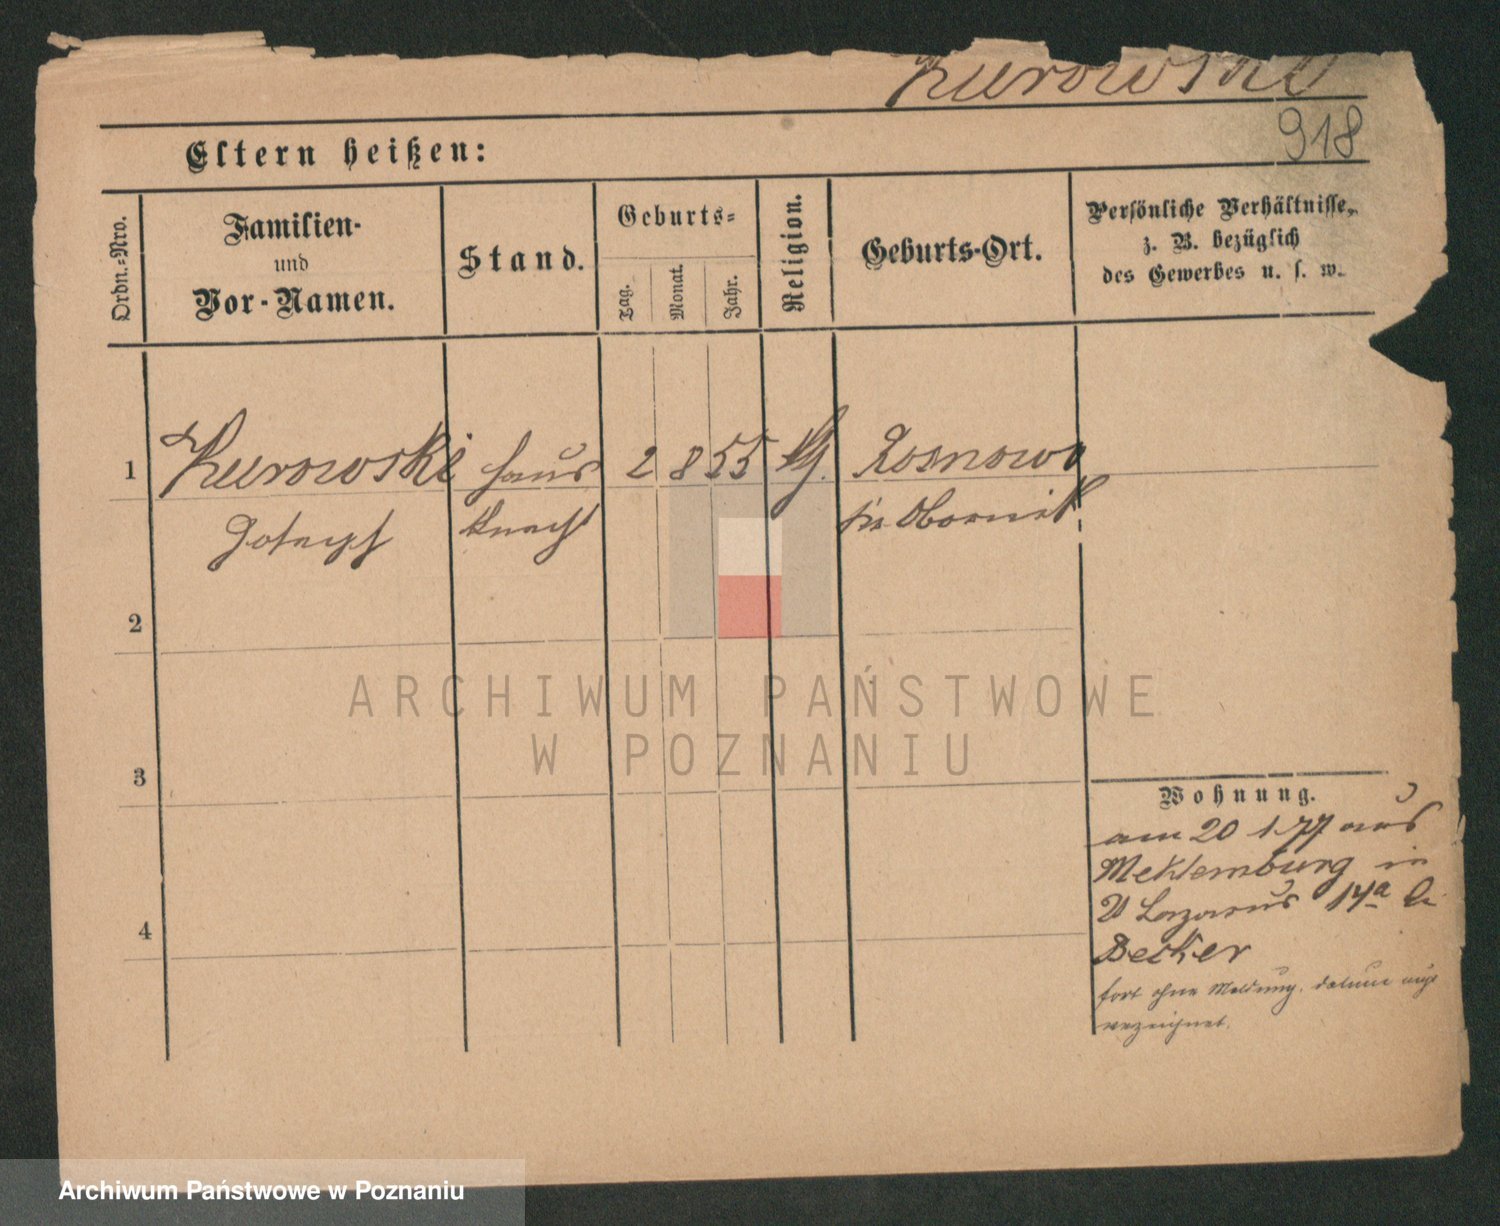 Kurowski
918
Eltern heißen:
Ordn.-Nro.
Familien-
und
Vor-Namen.
Stand.
Geburts-
Tag.
Monat.
Jahr.
Religion.
Geburts-Ort.
Persönliche Verhältnisse,
z. B. bezüglich
des Gewerbes u. s. w.
1
Kurowski Haus 2 8 55 Rosnowo
Joseph Knecht Kr. Obornik
2
ARCHIWUM PAŃSTWOWE
W POZNANIU
3
Wohnung.
am 20 1 77 aus
Meklemburg in
St Lazarus 14a bei
4
Becker
fort ohne Meldung. datum nicht
verzeichnet.
Archiwum Państwowe w Poznaniu